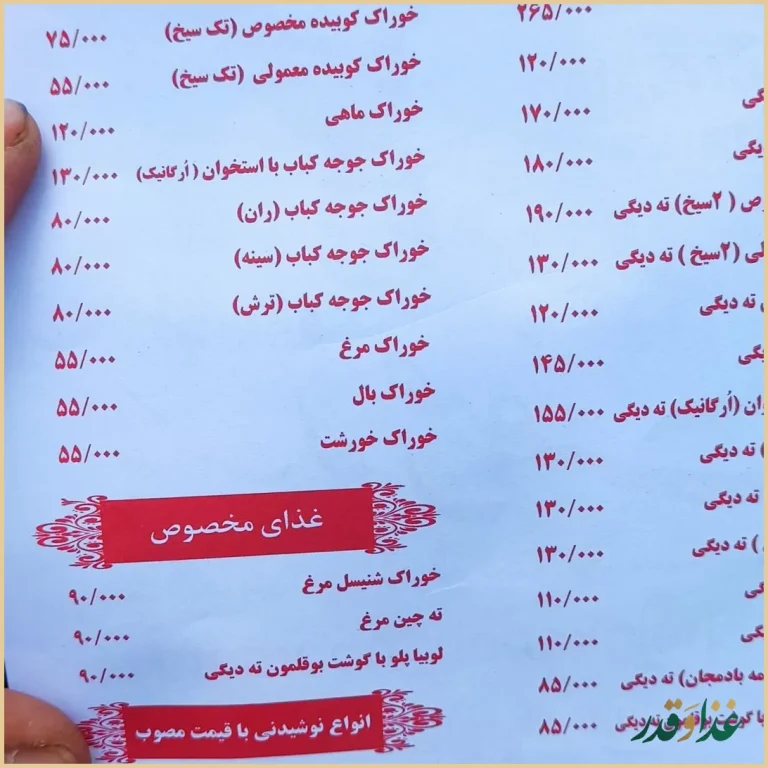 خوراک کوبیده مخصوص (تک سیخ) ۷۵/۰۰۰
خوراک کوبیده معمولی (تک سیخ) ۵۵/۰۰۰
خوراک ماهی ۱۲۰/۰۰۰
خوراک جوجه کباب با استخوان (اُرگانیک) ۱۳۰/۰۰۰
خوراک جوجه کباب (ران) ۸۰/۰۰۰
خوراک جوجه کباب (سینه) ۸۰/۰۰۰
خوراک جوجه کباب (ترش) ۸۰/۰۰۰
خوراک مرغ ۵۵/۰۰۰
خوراک بال ۵۵/۰۰۰
خوراک خورشت ۵۵/۰۰۰
غذای مخصوص
خوراک شنیسل مرغ ۹۰/۰۰۰
ته چین مرغ ۹۰/۰۰۰
لوبیا پلو با گوشت بوقلمون ته دیگی ۹۰/۰۰۰
انواع نوشیدنی با قیمت مصوب
۲۶۵/۰۰۰
۱۲۰/۰۰۰
۱۷۰/۰۰۰
۱۸۰/۰۰۰
(۲سیخ) ته دیگی ۱۹۰/۰۰۰
(۲سیخ) ته دیگی ۱۳۰/۰۰۰
ته دیگی ۱۲۰/۰۰۰
۱۴۵/۰۰۰
(اُرگانیک) ته دیگی ۱۵۵/۰۰۰
) ته دیگی ۱۳۰/۰۰۰
ته دیگی ۱۳۰/۰۰۰
) ته دیگی ۱۳۰/۰۰۰
۱۱۰/۰۰۰
۱۱۰/۰۰۰
بادمجان) ته دیگی ۸۵/۰۰۰
ته دیگی ۸۵/۰۰۰
غذا و قدر